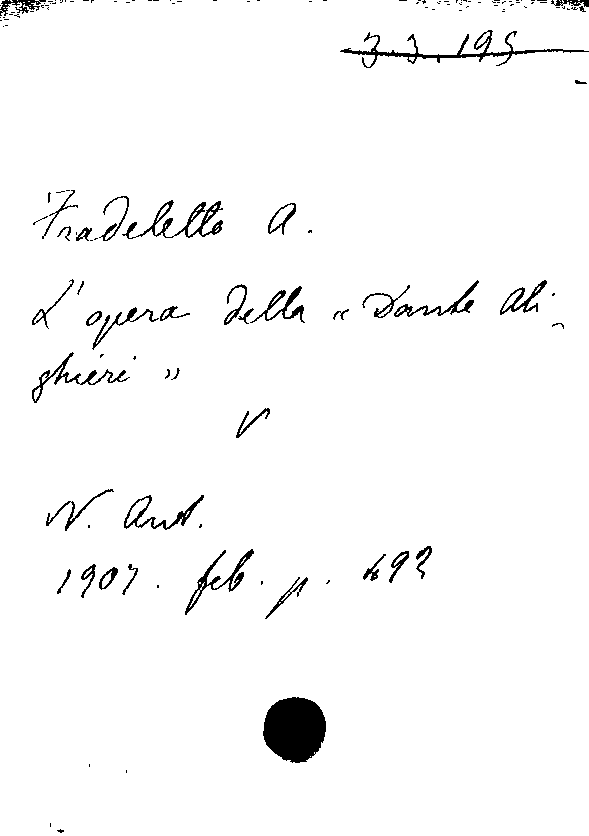 3.3.195
Fradeletto A.
L'opera della « Dante Ali-
ghieri »
V
N. Ant.
1907. feb. p. 493